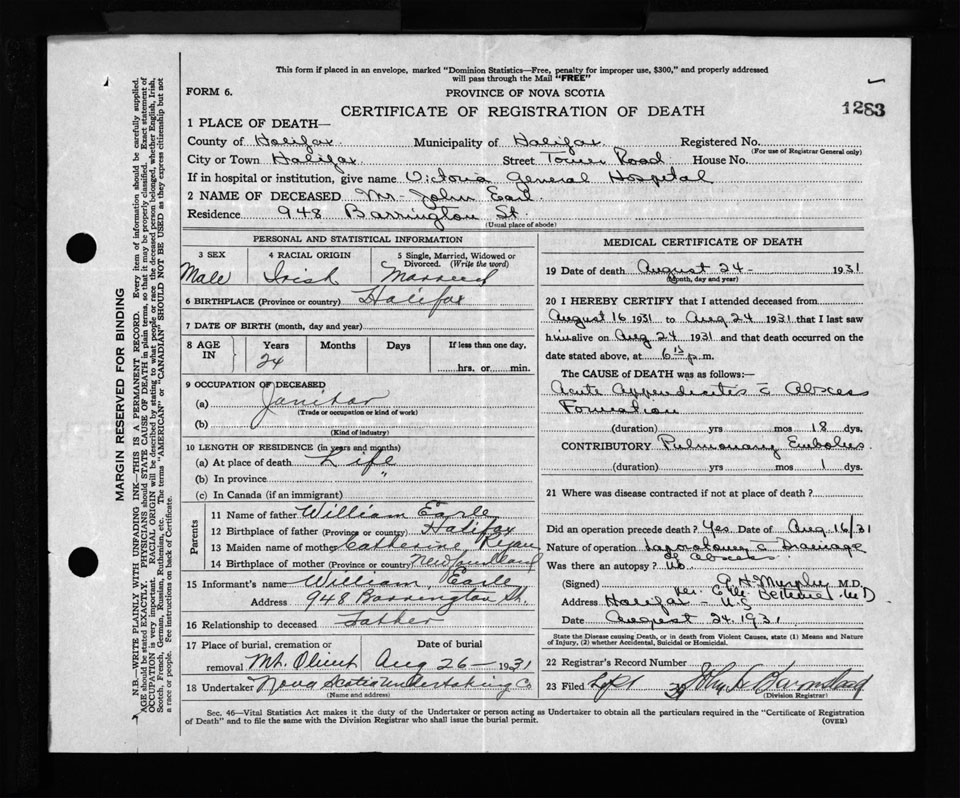 This form if placed in an envelope, marked "Dominion Statistics—Free, penalty for improper use, $300," and properly addressed
will pass through the Mail "FREE"
FORM 6.
PROVINCE OF NOVA SCOTIA
1283
CERTIFICATE OF REGISTRATION OF DEATH
1 PLACE OF DEATH—
County of Halifax Municipality of Halifax Registered No.
(For use of Registrar General only)
City or Town Halifax Street Tower Road House No.
If in hospital or institution, give name Victoria General Hospital
2 NAME OF DECEASED Mr. John Earl.
Residence 948 Barrington St.
(Usual place of abode)
PERSONAL AND STATISTICAL INFORMATION
3 SEX 4 RACIAL ORIGIN 5 Single, Married, Widowed or
Divorced. (Write the word)
Male Irish Married
6 BIRTHPLACE (Province or country) Halifax
7 DATE OF BIRTH (month, day and year)
8 AGE IN Years Months Days If less than one day,
24 hrs. or min.
9 OCCUPATION OF DECEASED
(a) Janitor
(Trade or occupation or kind of work)
(b)
(Kind of industry)
10 LENGTH OF RESIDENCE (in years and months)
(a) At place of death Life
(b) In province "
(c) In Canada (if an immigrant)
Parents
11 Name of father William Earle
12 Birthplace of father (Province or country) Halifax
13 Maiden name of mother Catherine Ryan
14 Birthplace of mother (Province or country) Newfoundland
15 Informant's name William Earle
Address 948 Barrington St.
16 Relationship to deceased Father
17 Place of burial, cremation or Date of burial
removal Mt. Olivet Aug 26 - 1931
18 Undertaker Nova Scotia Undertaking Co
(Name and address)
MEDICAL CERTIFICATE OF DEATH
19 Date of death August 24 - 1931
(Month, day and year)
20 I HEREBY CERTIFY that I attended deceased from
August 16 1931 to Aug 24 1931 that I last saw
him alive on Aug 24 1931 and that death occurred on the
date stated above, at 6 15 p.m.
The CAUSE OF DEATH was as follows:—
Acute Appendicitis c̄ Abscess
Formation
(duration) yrs mos 18 dys.
CONTRIBUTORY Pulmonary Embolus
(duration) yrs mos 1 dys.
21 Where was disease contracted if not at place of death?
Did an operation precede death? Yes. Date of Aug. 16/31
Nature of operation Laporotomy c̄ Drainage
of Abscess
Was there an autopsy? No.
(Signed) G H Murphy M.D.
per. M D
Address Halifax - N.S
Date August 24. 1931
State the Disease causing Death, or in death from Violent Causes, state (1) Means and Nature
of Injury, (2) whether Accidental, Suicidal or Homicidal.
22 Registrar's Record Number
23 Filed John
(Division Registrar)
Sec. 46—Vital Statistics Act makes it the duty of the Undertaker or person acting as Undertaker to obtain all the particulars required in the "Certificate of Registration
of Death" and to file the same with the Division Registrar who shall issue the burial permit.
(OVER)
MARGIN RESERVED FOR BINDING
N.B.—WRITE PLAINLY WITH UNFADING INK—THIS IS A PERMANENT RECORD. Every item of information should be carefully supplied.
AGE should be stated EXACTLY. PHYSICIANS should STATE CAUSE OF DEATH in plain terms, so that it may be properly classified. Exact statement of
OCCUPATION is very important. RACIAL ORIGIN will be described by stating to what people or race the deceased person belonged, whether English, Irish,
Scotch, French, German, Russian, Ruthenian, etc. The terms "AMERICAN" or "CANADIAN" SHOULD NOT BE USED as they express citizenship but not
a race or people. See instructions on back of Certificate.